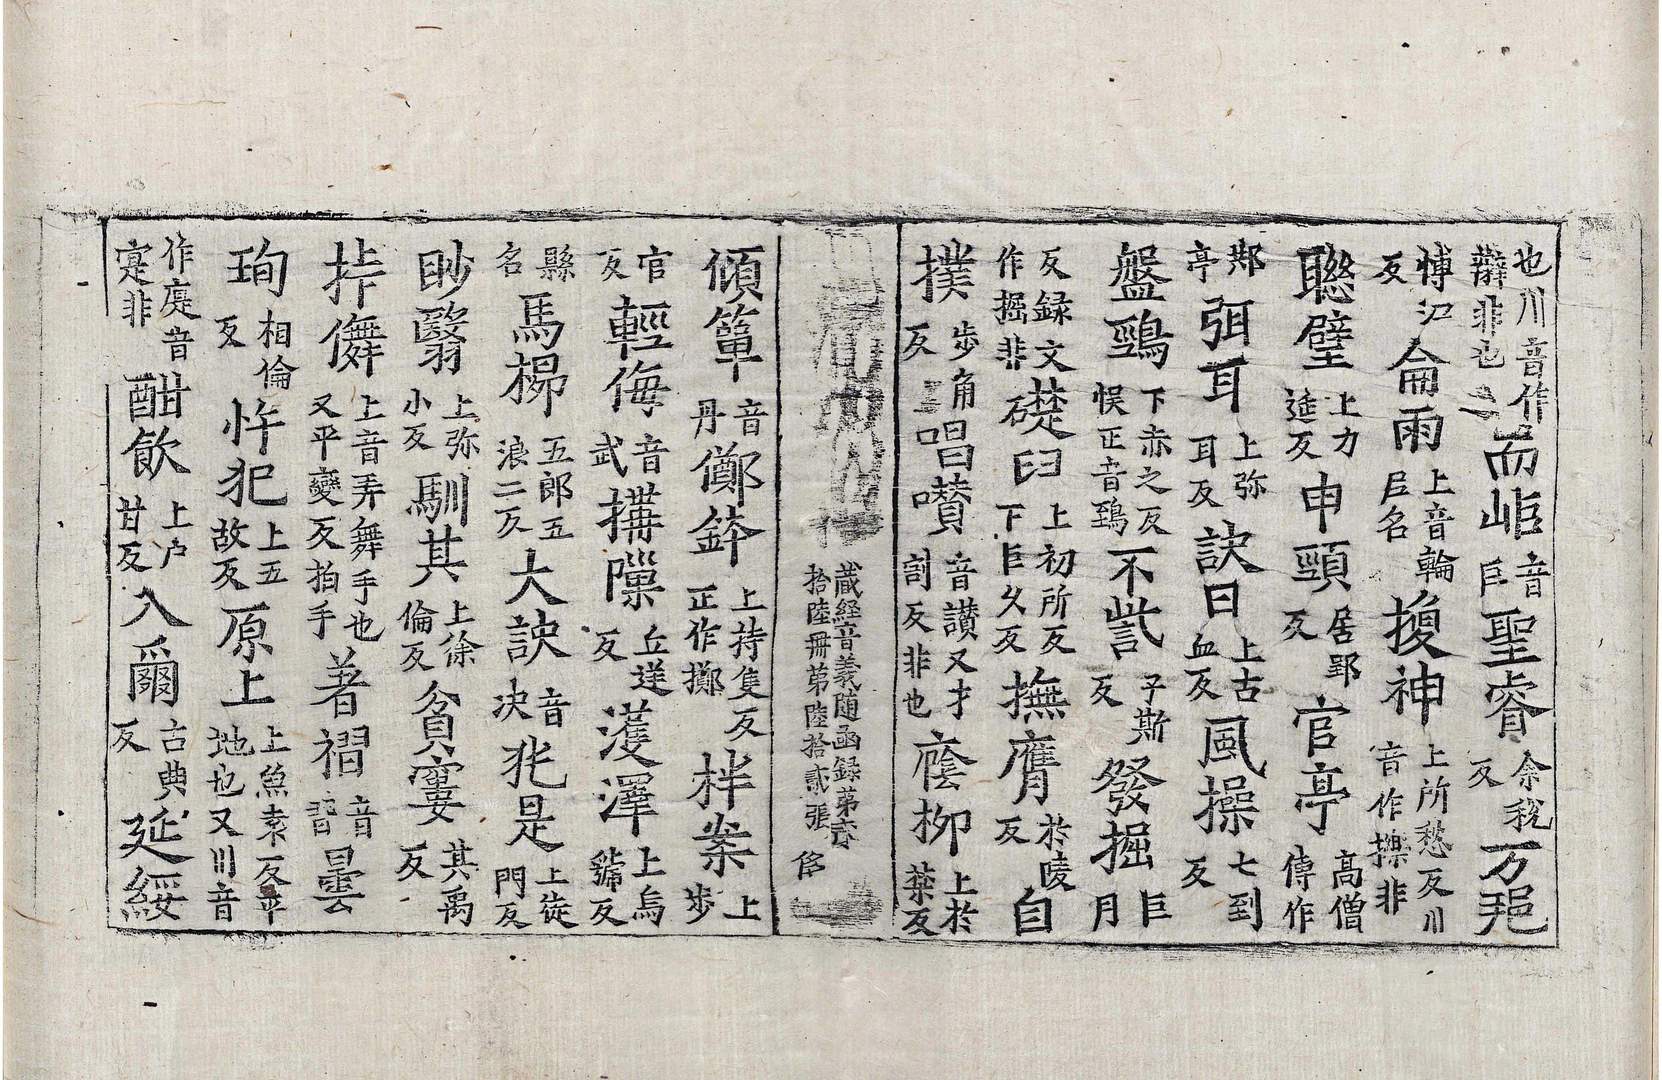 也川音作辯非也而岠音巨聖睿余稅反万𨙸
博江反侖雨上音輪𡰱名㨱神上所愁反川音作擽非
聮璧上力延反申頸居郢反官亭高僧傳作
鄁亭弭耳上弥耳反訣日上古血反風操七到反
盤鵛下赤之反悮正音鵄不訾子斯反發掘巨月
反録文作掘非礎臼上初所反下巨久反撫膺於陵反自
撲步角反唱囋音讃又才割反非也廕柳上於䕓反
蔵經音義随函録第
拾陸册第陸拾貳張
傾簞音丹𠏧鉢上持隻反正作擲柈案上步
官反輕侮音武搆㘿丘逆反濩澤上烏虢反
縣名馬楊五郎五浪二反大訣音决兆是上徒門反
眇翳上弥小反馴其上徐倫反貧窶其禹反
拤儛上音弄舞手也又平變反拍手著褶音習曇
珣相倫反忤犯上五故反原上上魚袁反平地也又川音
作㢘音寔非酣飲上户甘反入𠕅古典反延綏